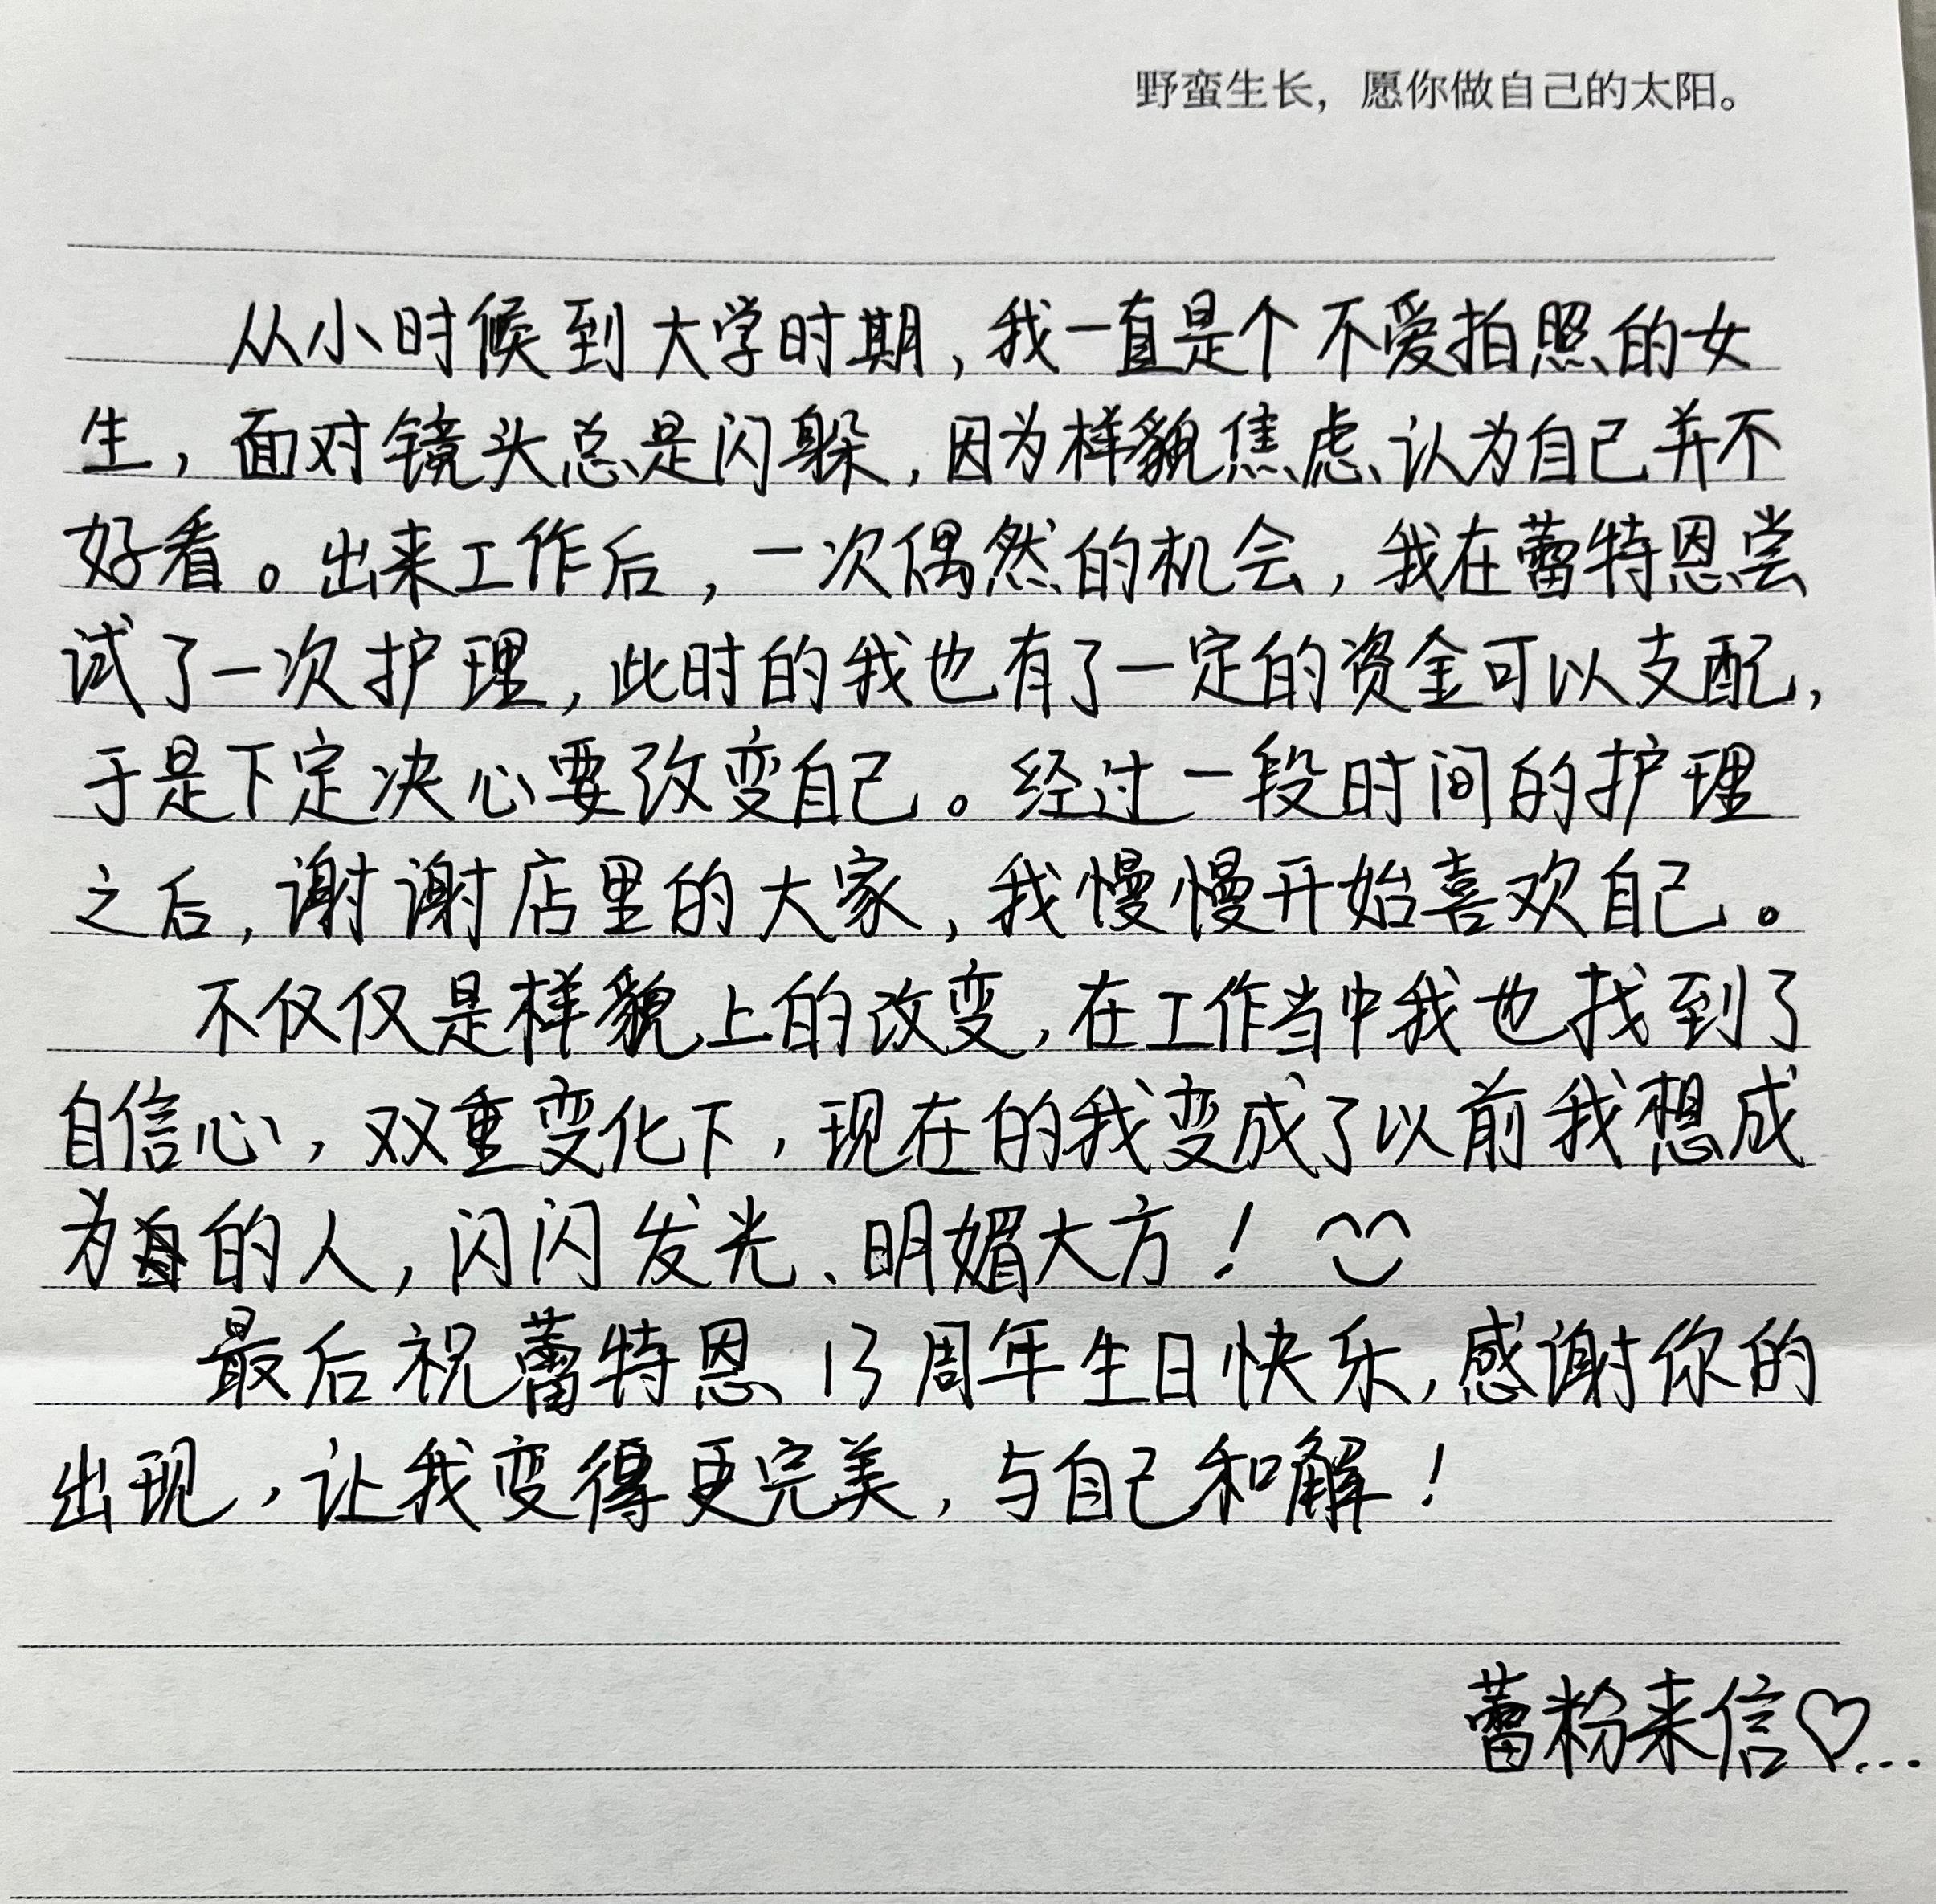 野蛮生长，愿你做自己的太阳。
从小时候到大学时期，我一直是个不爱拍照的女
生，面对镜头总是闪躲，因为样貌焦虑、认为自己并不
好看。出来工作后，一次偶然的机会，我在蕾特恩尝
试了一次护理，此时的我也有了一定的资金可以支配，
于是下定决心要改变自己。经过一段时间的护理
之后，谢谢店里的大家，我慢慢开始喜欢自己。
不仅仅是样貌上的改变，在工作当中我也找到了
自信心，双重变化下，现在的我变成了以前我想成
为的人，闪闪发光、明媚大方！
最后祝蕾特恩13周年生日快乐，感谢你的
出现，让我变得更完美，与自己和解！
蕾粉来信♡...